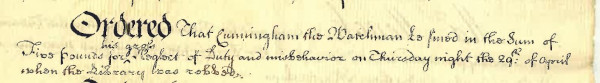 Ordered That Cunningham the Watchman be fined in the Sum of
his gross
Five pounds for Neglect of Duty and misbehavior on Thursday night the 29th. of April
when the Library was robbed.